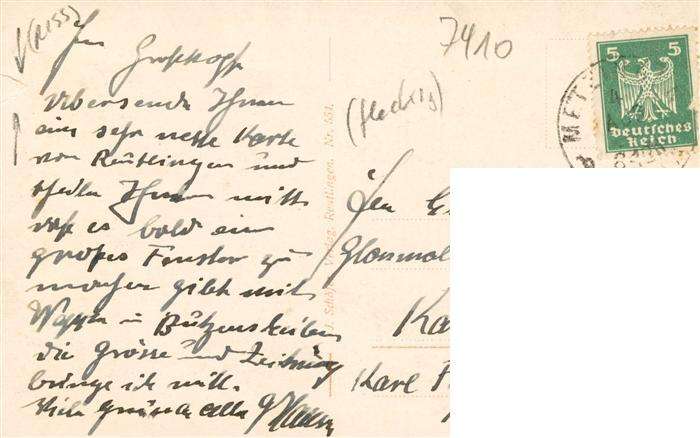 (RISS)
7410
Großkopf
Übersende Ihnen
eine sehr nette Karte
von Reutlingen und
theile Ihnen mitt
daß es bald ein
großes Fenster zu
machen gibt mit
Wappen u Butzenscheiben
die Grösse und Zeichnung
bringe ich mitt.
Viele Grüsse alle
Verlag Reutlingen. Nr. 551.
(fleckig)
Glasmal
Ka
Karl
5 5
Deutsches
Reich
MET